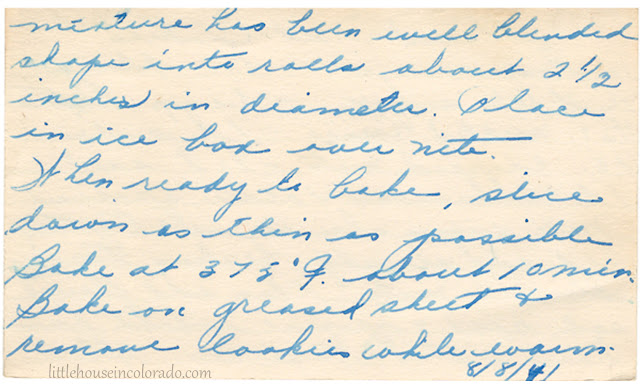 mixture has been well blended
shape into rolls about 2 1/2
inches in diameter. Place
in ice box over nite.
When ready to bake, slice
down as thin as possible
Bake at 375°F. about 10 min.
Bake on greased sheet &
remove cookies while warm.
8/8/41
littlehouseincolorado.com